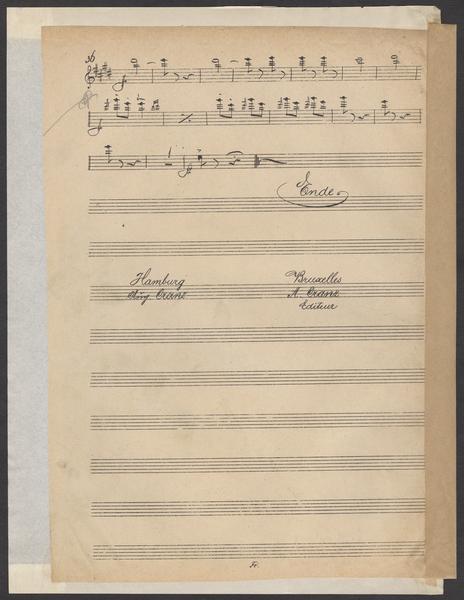 36
Ende.
Hamburg
Aug. Cranz
Bruxelles
A. Cranz
Editeur
Fr.